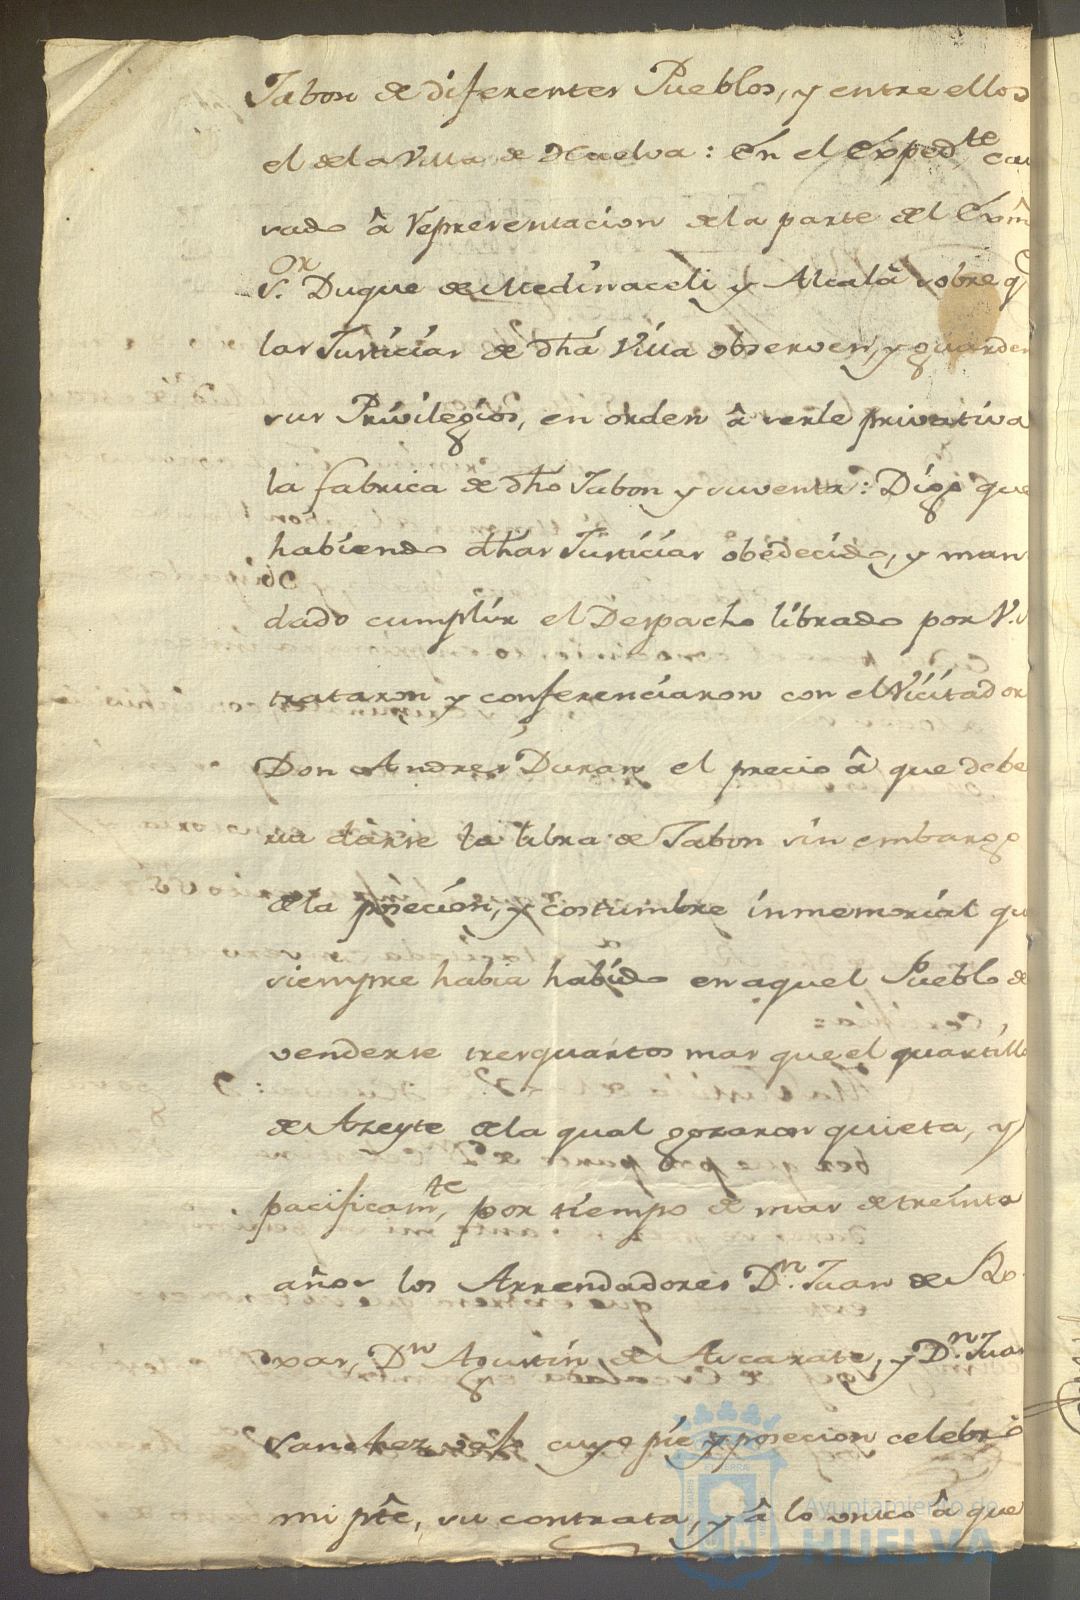 Jabon de diferentes Pueblos, y entre ellos
el de la Villa de Huelva: En el Expedte. cau
sado â representacion de la parte del Exmô
Sor. Duque de Medinaceli y Alcalâ sobre q
las Justicias de dha Villa observen, y guarden
sus Privilegios, en orden â serle privativa
la fabrica de dho Jabon y su venta: Digo que
habiendo dhas Justicias obedecido, y man
dado cumplir el Despacho librado por V.
trataron y conferenciaron con el Vicitador
Don Andres Duran el precio â que debe
ria darse la libra de Jabon sin embargo
de la poseción, y costumbre inmemorial qu
siempre habia habido en aquel Pueblo de
venderse tres quartos mas que el quartillo
de Azeyte de la qual gozaron quieta, y
pacificamte. por tiempo de mas de treinta
años los Arrendadores Dn. Juan de Ro
xas, Dn Agustin de Ascarate, y Dn. Juan
Sanchez cuyo pie y posecion celebrô
mi pte, su contrata, y â lo unico â que
Ayuntamiento de
HUELVA